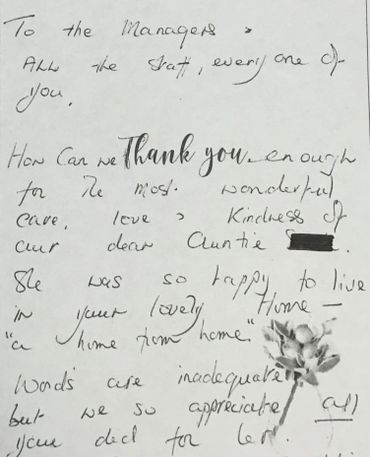 To the Managers &
All the staff, every one of
you.
How Can we Thank you enough
for the most wonderful
care, love & Kindness of
our dear Auntie
She was so happy to live
in your lovely Home –
"a home from home."
Words are inadequate
but we so appreciate all
you did for her.